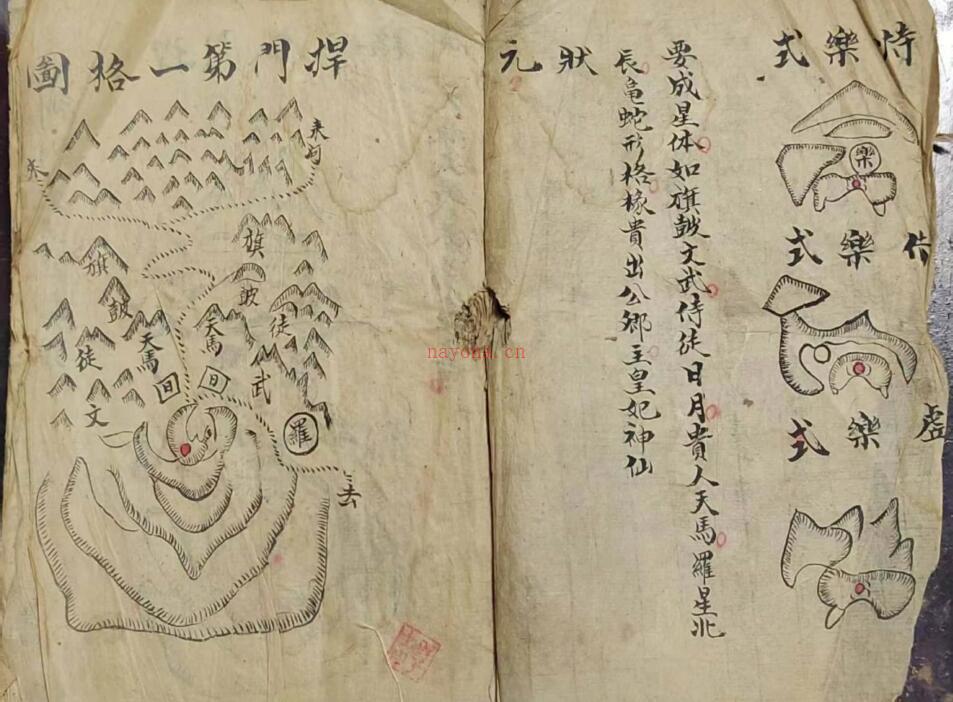 侍樂式
樂
式
樂
式
樂
要成星体如旗鼓文武侍徒日月貴人天馬羅星北
辰龜蛇形格椽貴出公鄉主皇妃神仙
狀元
捍門第一格圖
来
来
旗
旗
鼓
鼓
天馬
天馬
徒
徒
文
武
羅
去
nayona.cn